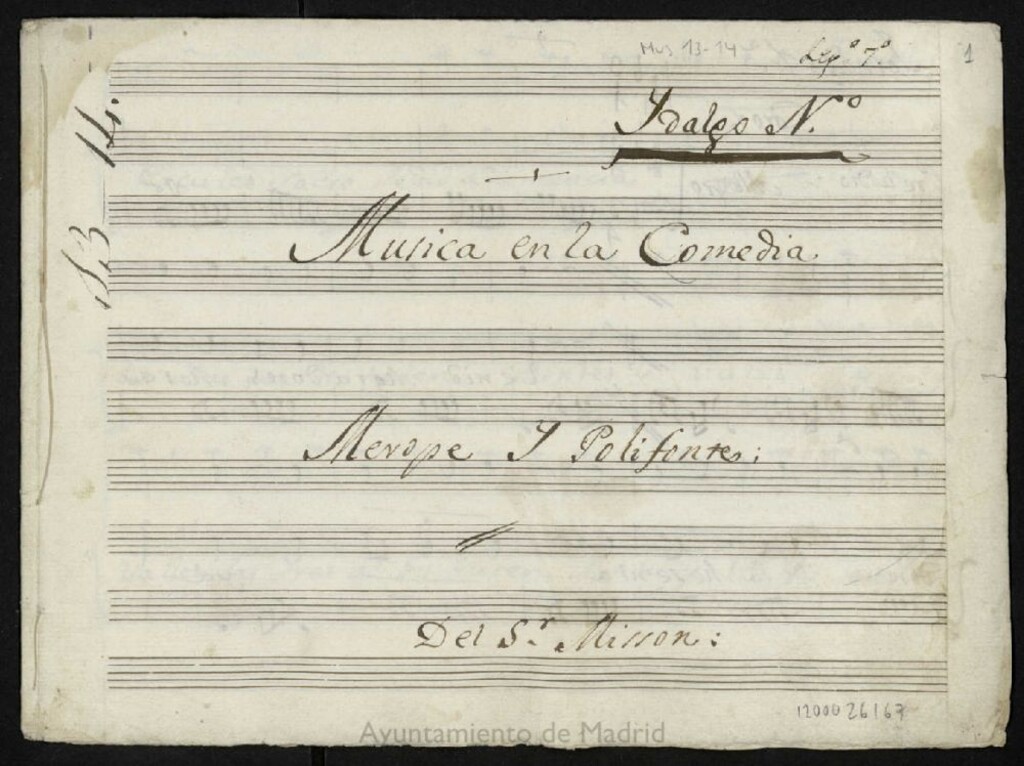 Mus 13-14
Leg.º 7.º
1
Ydalgo N.º
13 14.
Musica en la Comedia
Merope Y Polifontes;
Del S.r Misson:
1200026167
Ayuntamiento de Madrid